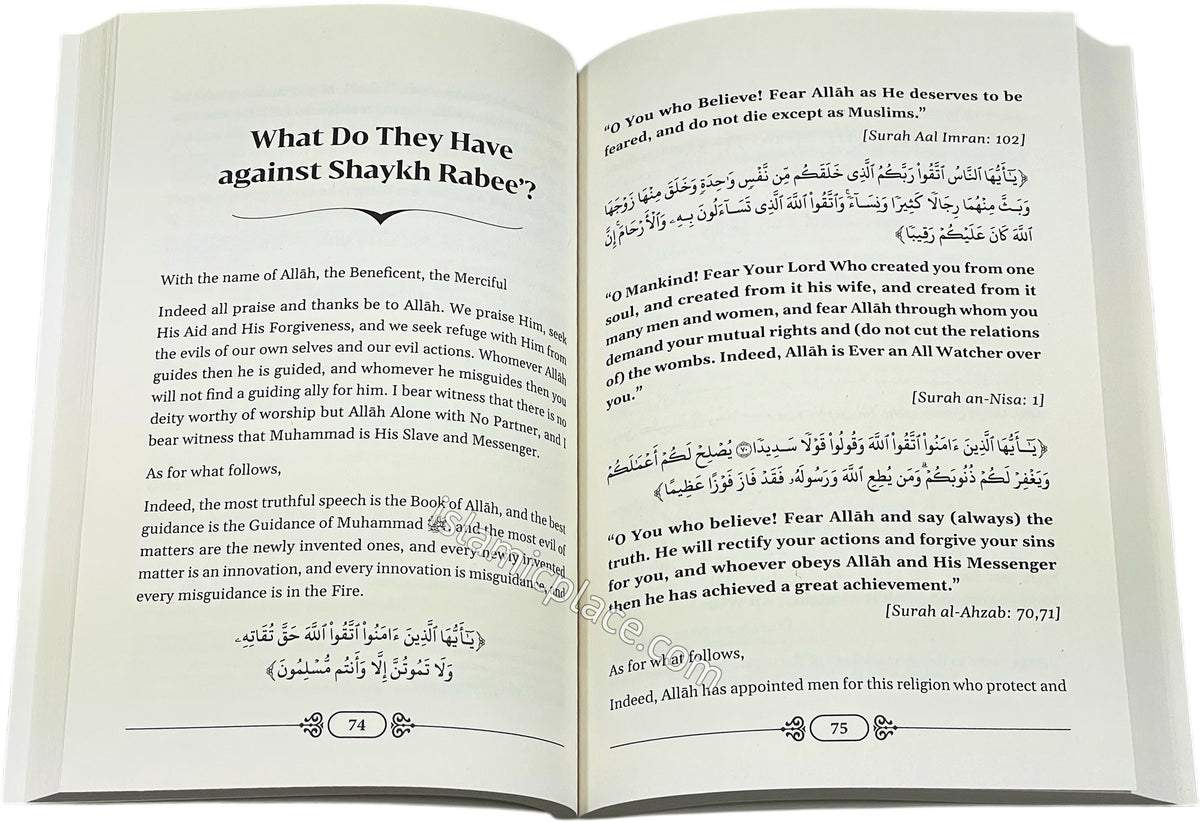 What Do They Have
against Shaykh Rabee’?
With the name of Allāh, the Beneficent, the Merciful
Indeed all praise and thanks be to Allāh. We praise Him, seek
His Aid and His Forgiveness, and we seek refuge with Him from
the evils of our own selves and our evil actions. Whomever Allāh
guides then he is guided, and whomever he misguides then you
will not find a guiding ally for him. I bear witness that there is no
deity worthy of worship but Allāh Alone with No Partner, and I
bear witness that Muhammad is His Slave and Messenger.
As for what follows,
Indeed, the most truthful speech is the Book of Allāh, and the best
guidance is the Guidance of Muhammad ﷺ, and the most evil of
matters are the newly invented ones, and every newly invented
matter is an innovation, and every innovation is misguidance, and
every misguidance is in the Fire.
﴿يَـٰٓأَيُّهَا ٱلَّذِينَ ءَامَنُوا۟ ٱتَّقُوا۟ ٱللَّهَ حَقَّ تُقَاتِهِۦ
وَلَا تَمُوتُنَّ إِلَّا وَأَنتُم مُّسْلِمُونَ﴾
74
“O You who Believe! Fear Allāh as He deserves to be
feared, and do not die except as Muslims.”
[Surah Aal Imran: 102]
﴿يَـٰٓأَيُّهَا ٱلنَّاسُ ٱتَّقُوا۟ رَبَّكُمُ ٱلَّذِى خَلَقَكُم مِّن نَّفْسٍ وَٰحِدَةٍ وَخَلَقَ مِنْهَا زَوْجَهَا
وَبَثَّ مِنْهُمَا رِجَالًا كَثِيرًا وَنِسَآءً ۚ وَٱتَّقُوا۟ ٱللَّهَ ٱلَّذِى تَسَآءَلُونَ بِهِۦ وَٱلْأَرْحَامَ ۚ إِنَّ
ٱللَّهَ كَانَ عَلَيْكُمْ رَقِيبًا﴾
“O Mankind! Fear Your Lord Who created you from one
soul, and created from it his wife, and created from it
many men and women, and fear Allāh through whom you
demand your mutual rights and (do not cut the relations
of) the wombs. Indeed, Allāh is Ever an All Watcher over
you.”
[Surah an-Nisa: 1]
﴿يَـٰٓأَيُّهَا ٱلَّذِينَ ءَامَنُوا۟ ٱتَّقُوا۟ ٱللَّهَ وَقُولُوا۟ قَوْلًا سَدِيدًا ۝٧٠ يُصْلِحْ لَكُمْ أَعْمَـٰلَكُمْ
وَيَغْفِرْ لَكُمْ ذُنُوبَكُمْ ۗ وَمَن يُطِعِ ٱللَّهَ وَرَسُولَهُۥ فَقَدْ فَازَ فَوْزًا عَظِيمًا﴾
“O You who believe! Fear Allāh and say (always) the
truth. He will rectify your actions and forgive your sins
for you, and whoever obeys Allāh and His Messenger
then he has achieved a great achievement.”
[Surah al-Ahzab: 70,71]
As for what follows,
Indeed, Allāh has appointed men for this religion who protect and
75
islamicplace.com